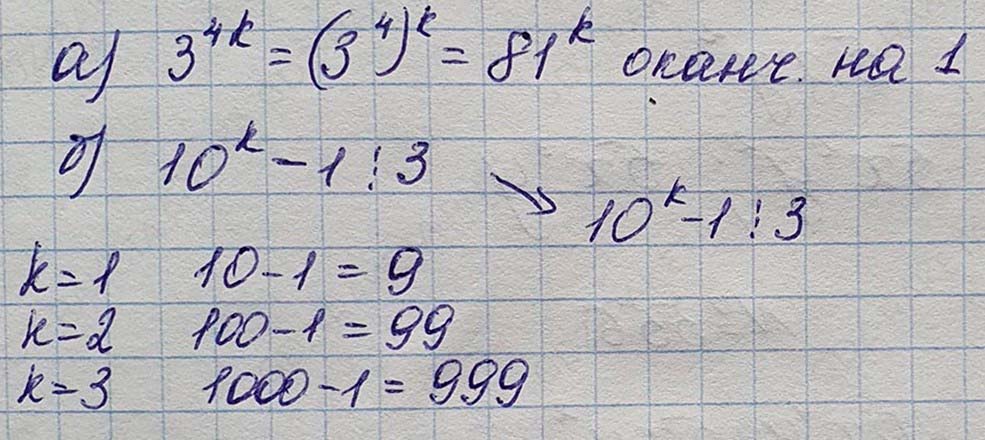 а) 3^{4k} = (3^4)^k = 81^k оканч. на 1
б) 10^k - 1 ⋮ 3
↘ 10^k - 1 ⋮ 3
k = 1 10 - 1 = 9
k = 2 100 - 1 = 99
k = 3 1000 - 1 = 999